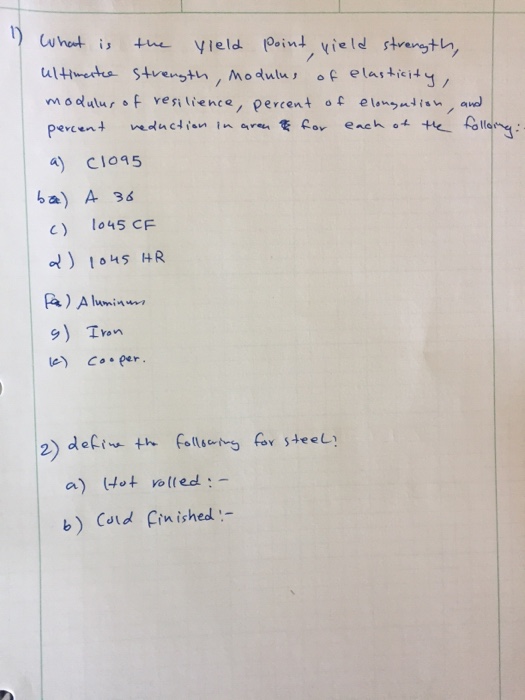 1) What is the yield point, yield strength,
ultimate strength, Modulus of elasticity,
modulus of resilience, percent of elongation, and
percent reduction in area for each of the following:-
a) C1095
b) A 36
c) 1045 CF
d) 1045 HR
f) Aluminum
g) Iron
k) Cooper.
2) define the following for steel:
a) Hot rolled :-
b) Cold finished :-